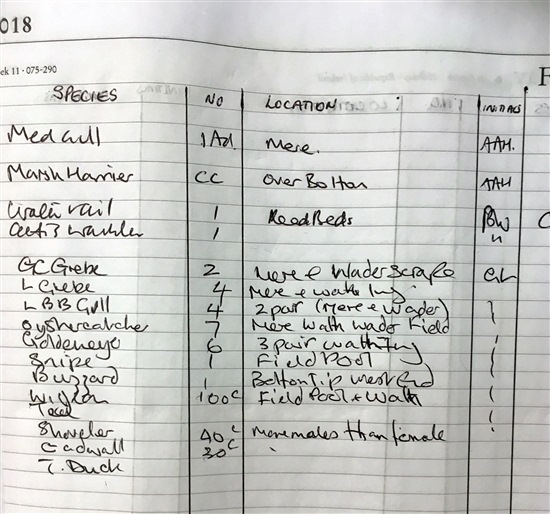 018
ek 11 · 075-290
F
SPECIES NO LOCATION : INITIALS
Med Gull 1 Ad Mere. AAH.
Marsh Harrier CC Over Bolton AAH
Water rail 1 Reed Beds BW
Cetti's warbler 1 "
GC Grebe 2 Mere & Wader Scrape
L Grebe 4 Mere &
L BB Gull 4 2 pair (Mere & Wader)
Oystercatcher 7 Mere Wath Wader Field
Goldeneye 6 3 pair Wath Ing
Snipe 1 Field Pool
Buzzard 1 Bolton Tip West End
Wigeon 100c Field Pool & Wath
Teal
Shoveler 40c More males than female
Gadwall 30c
T. Duck